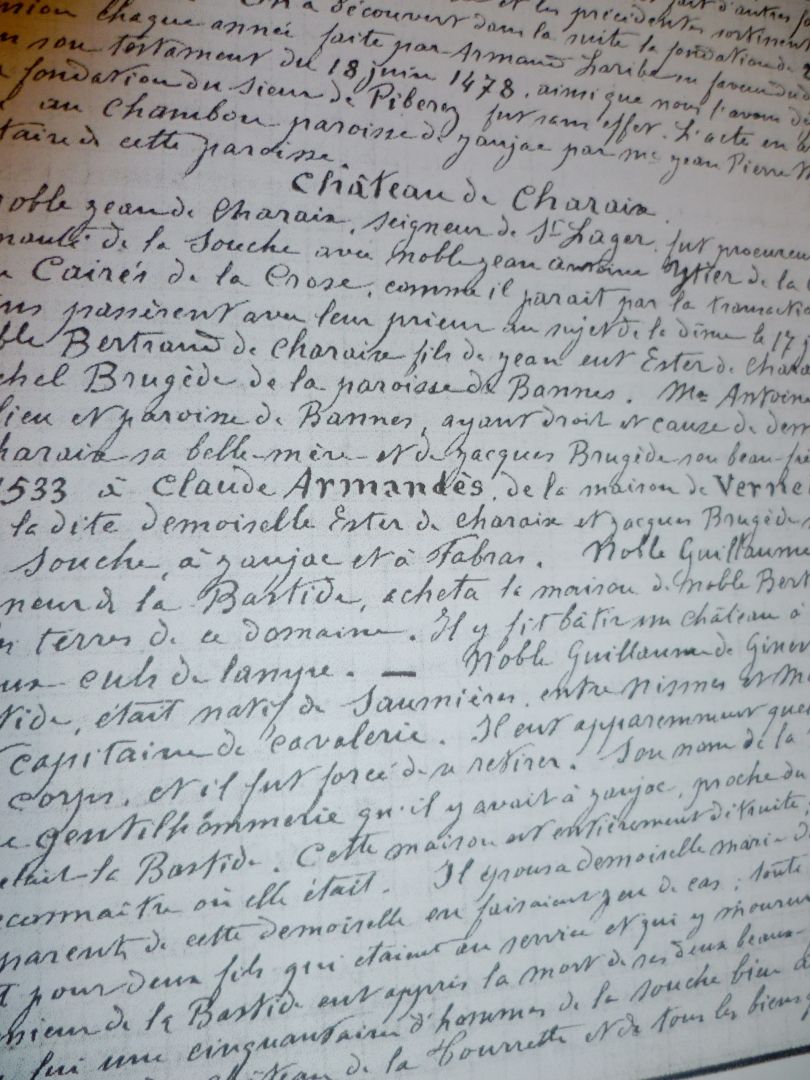 découvert dans la suite la fondation de
chaque année faite par Armand Laribe en faveur du
son testament du 18 juin 1478, ainsi que nous l'avons
fondation du sieur de Piberez fut sans effet. L'acte en
au Chambon paroisse de Jaujac par me Jean Pierre
taire de cette paroisse.
Château de Charaix.
noble Jean de Charaix, seigneur de St Lager, fut procureur
nauté de la Souche avec noble Jean Antoine de la
Cairés de la Crose, comme il parait par la transaction
passèrent avec leur prieur au sujet de la dîme le 17
ble Bertrand de Charaix fils de Jean eut Ester de Chara
chel Brugède de la paroisse de Bannes. Me Antoine
lieu et paroisse de Bannes, ayant droit et cause de dem
haraix sa belle-mère et de Jacques Brugède son beau-frè
1533 à Claude Armandès, de la maison de Verne
la dite demoiselle Ester de Charaix et Jacques Brugède
Souche, à Jaujac et à Fabras. Noble Guillaume
neur de la Bastide, acheta la maison de noble Bert
terres de ce domaine. Il y fit bâtir un château à
culs de lampe. — Noble Guillaume de Gines
tide, était natif de Saumières, entre Nismes et M
capitaine de cavalerie. Il eut apparemment quel
corps, et il fut forcé de se retirer. Son nom de la
gentilhommerie qu'il y avait à Jaujac, proche du
était la Bastide. Cette maison est entièrement détruite,
econnaître où elle était. Il épousa demoiselle marie d
parents de cette demoiselle en faisaient peu de cas; toute
pour deux fils qui étaient au service et qui y mourur
sieur de la Bastide eut appris la mort de ses deux beaux-
lui une cinquantaine d'hommes de la Souche bien
de la Tourrette et de tous les biens